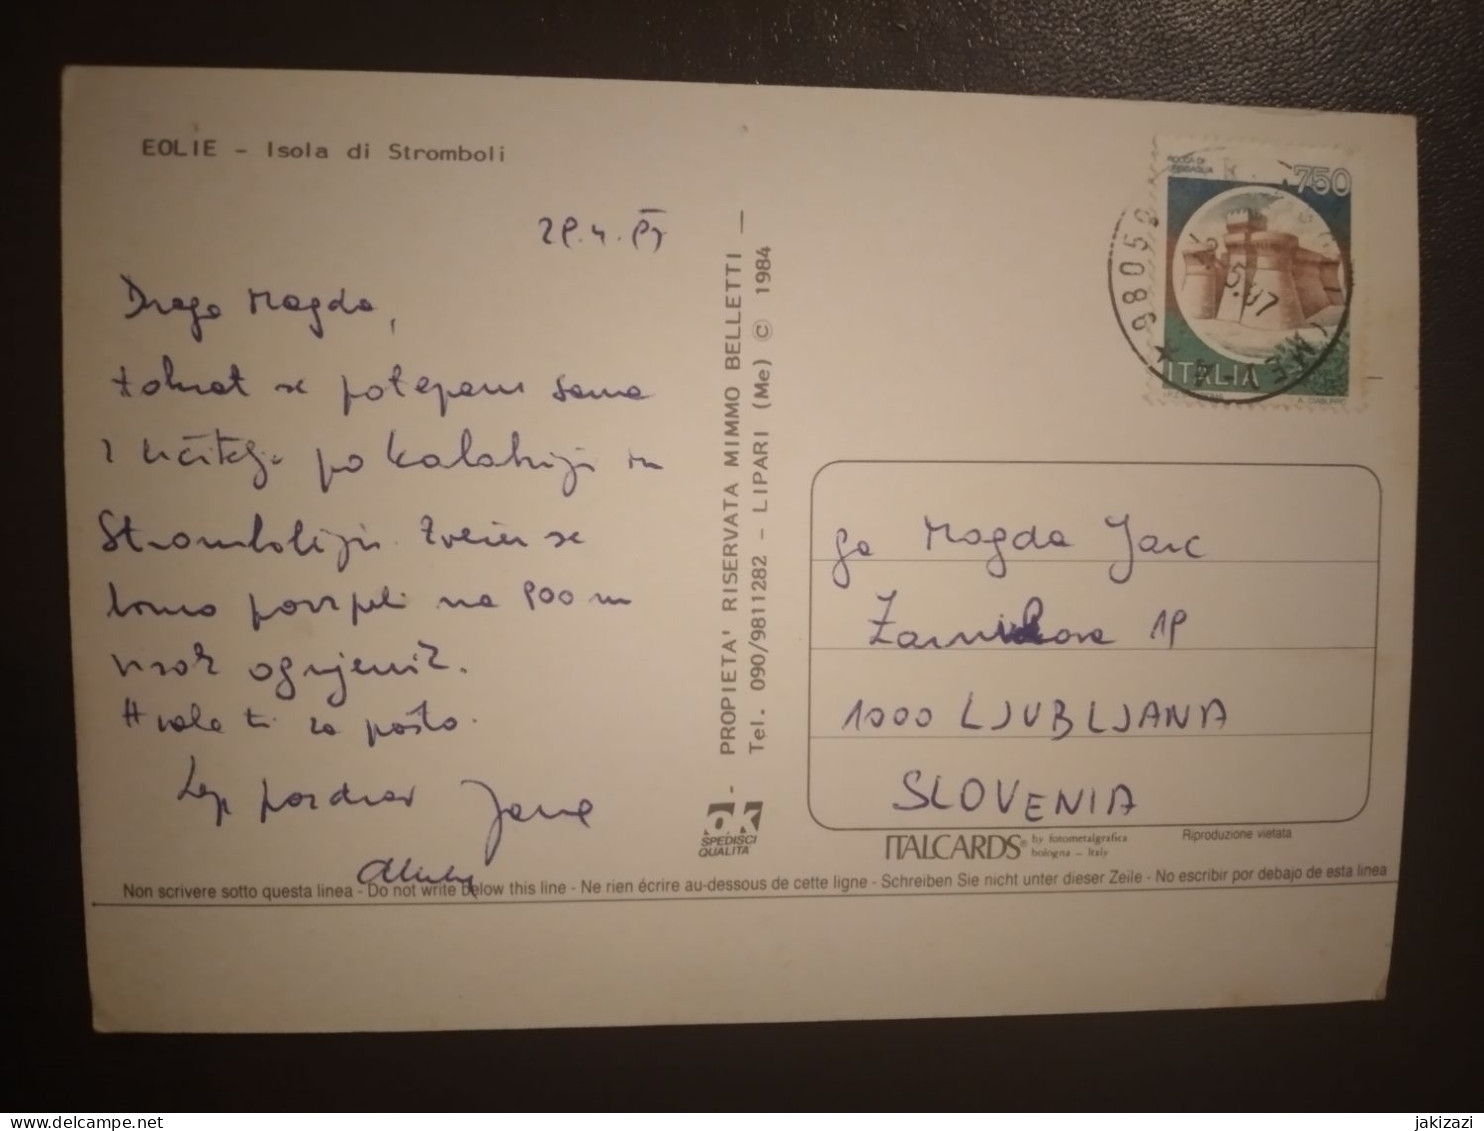 EOLIE - Isola di Stromboli
Draga Magda,
tokrat se potepam sama
z učitelji po Kalabriji in
Stromboliju. Zvečer se
bomo povzpeli na 900 m
visok ognjenik.
Hvala ti za pošto.
Lep pozdrav Jana
- PROPIETA' RISERVATA MIMMO BELLETTI -
Tel. 090/9811282 - LIPARI (Me) © 1984
ok
SPEDISCI
QUALITA'
ROCCA DI
URBISAGLIA
750
ITALIA
98050
5.97
(ME)
ga Magda Jarc
Zarnikova 19
1000 LJUBLJANA
SLOVENIA
ITALCARDS® by fotometalgrafica
bologna - Italy
Riproduzione vietata
Non scrivere sotto questa linea - Do not write below this line - Ne rien écrire au-dessous de cette ligne - Schreiben Sie nicht unter dieser Zeile - No escribir por debajo de esta linea
delcampe.net
jakizazi